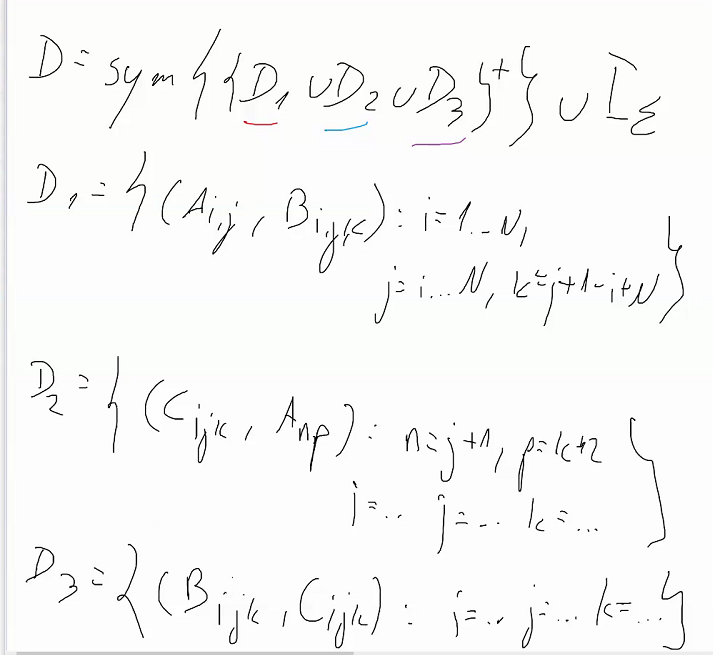 D = sym{{D₁ ∪ D₂ ∪ D₃}⁺} ∪ I_Σ
D₁ = {(A_{i,j}, B_{i,j,k}) : i=1..N,
j=i...N, k=j+1-i+N}
D₂ = {(C_{ijk}, A_{np}) : n=j+1, p=k+2
i=.. j=... k=...}
D₃ = {(B_{ijk}, C_{ijk}) : i=.. j=... k=...}